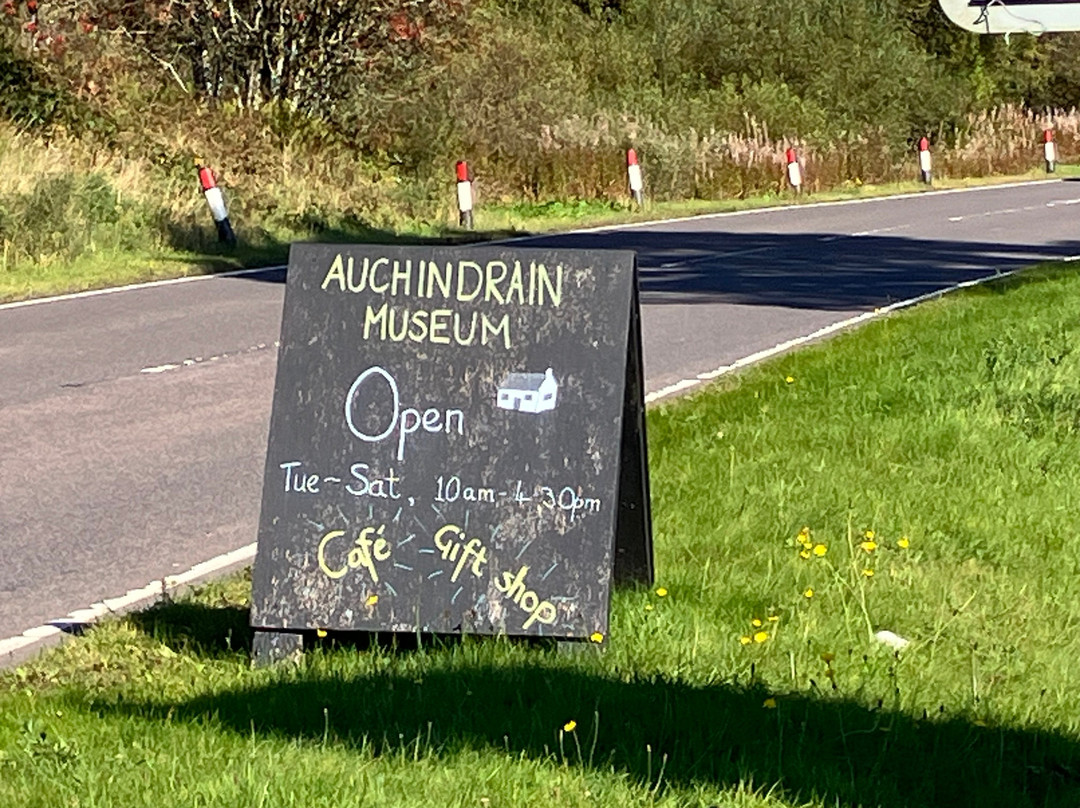 AUCHINDRAIN
MUSEUM
Open
Tue~Sat, 10am-4-30pm
Café Gift shop